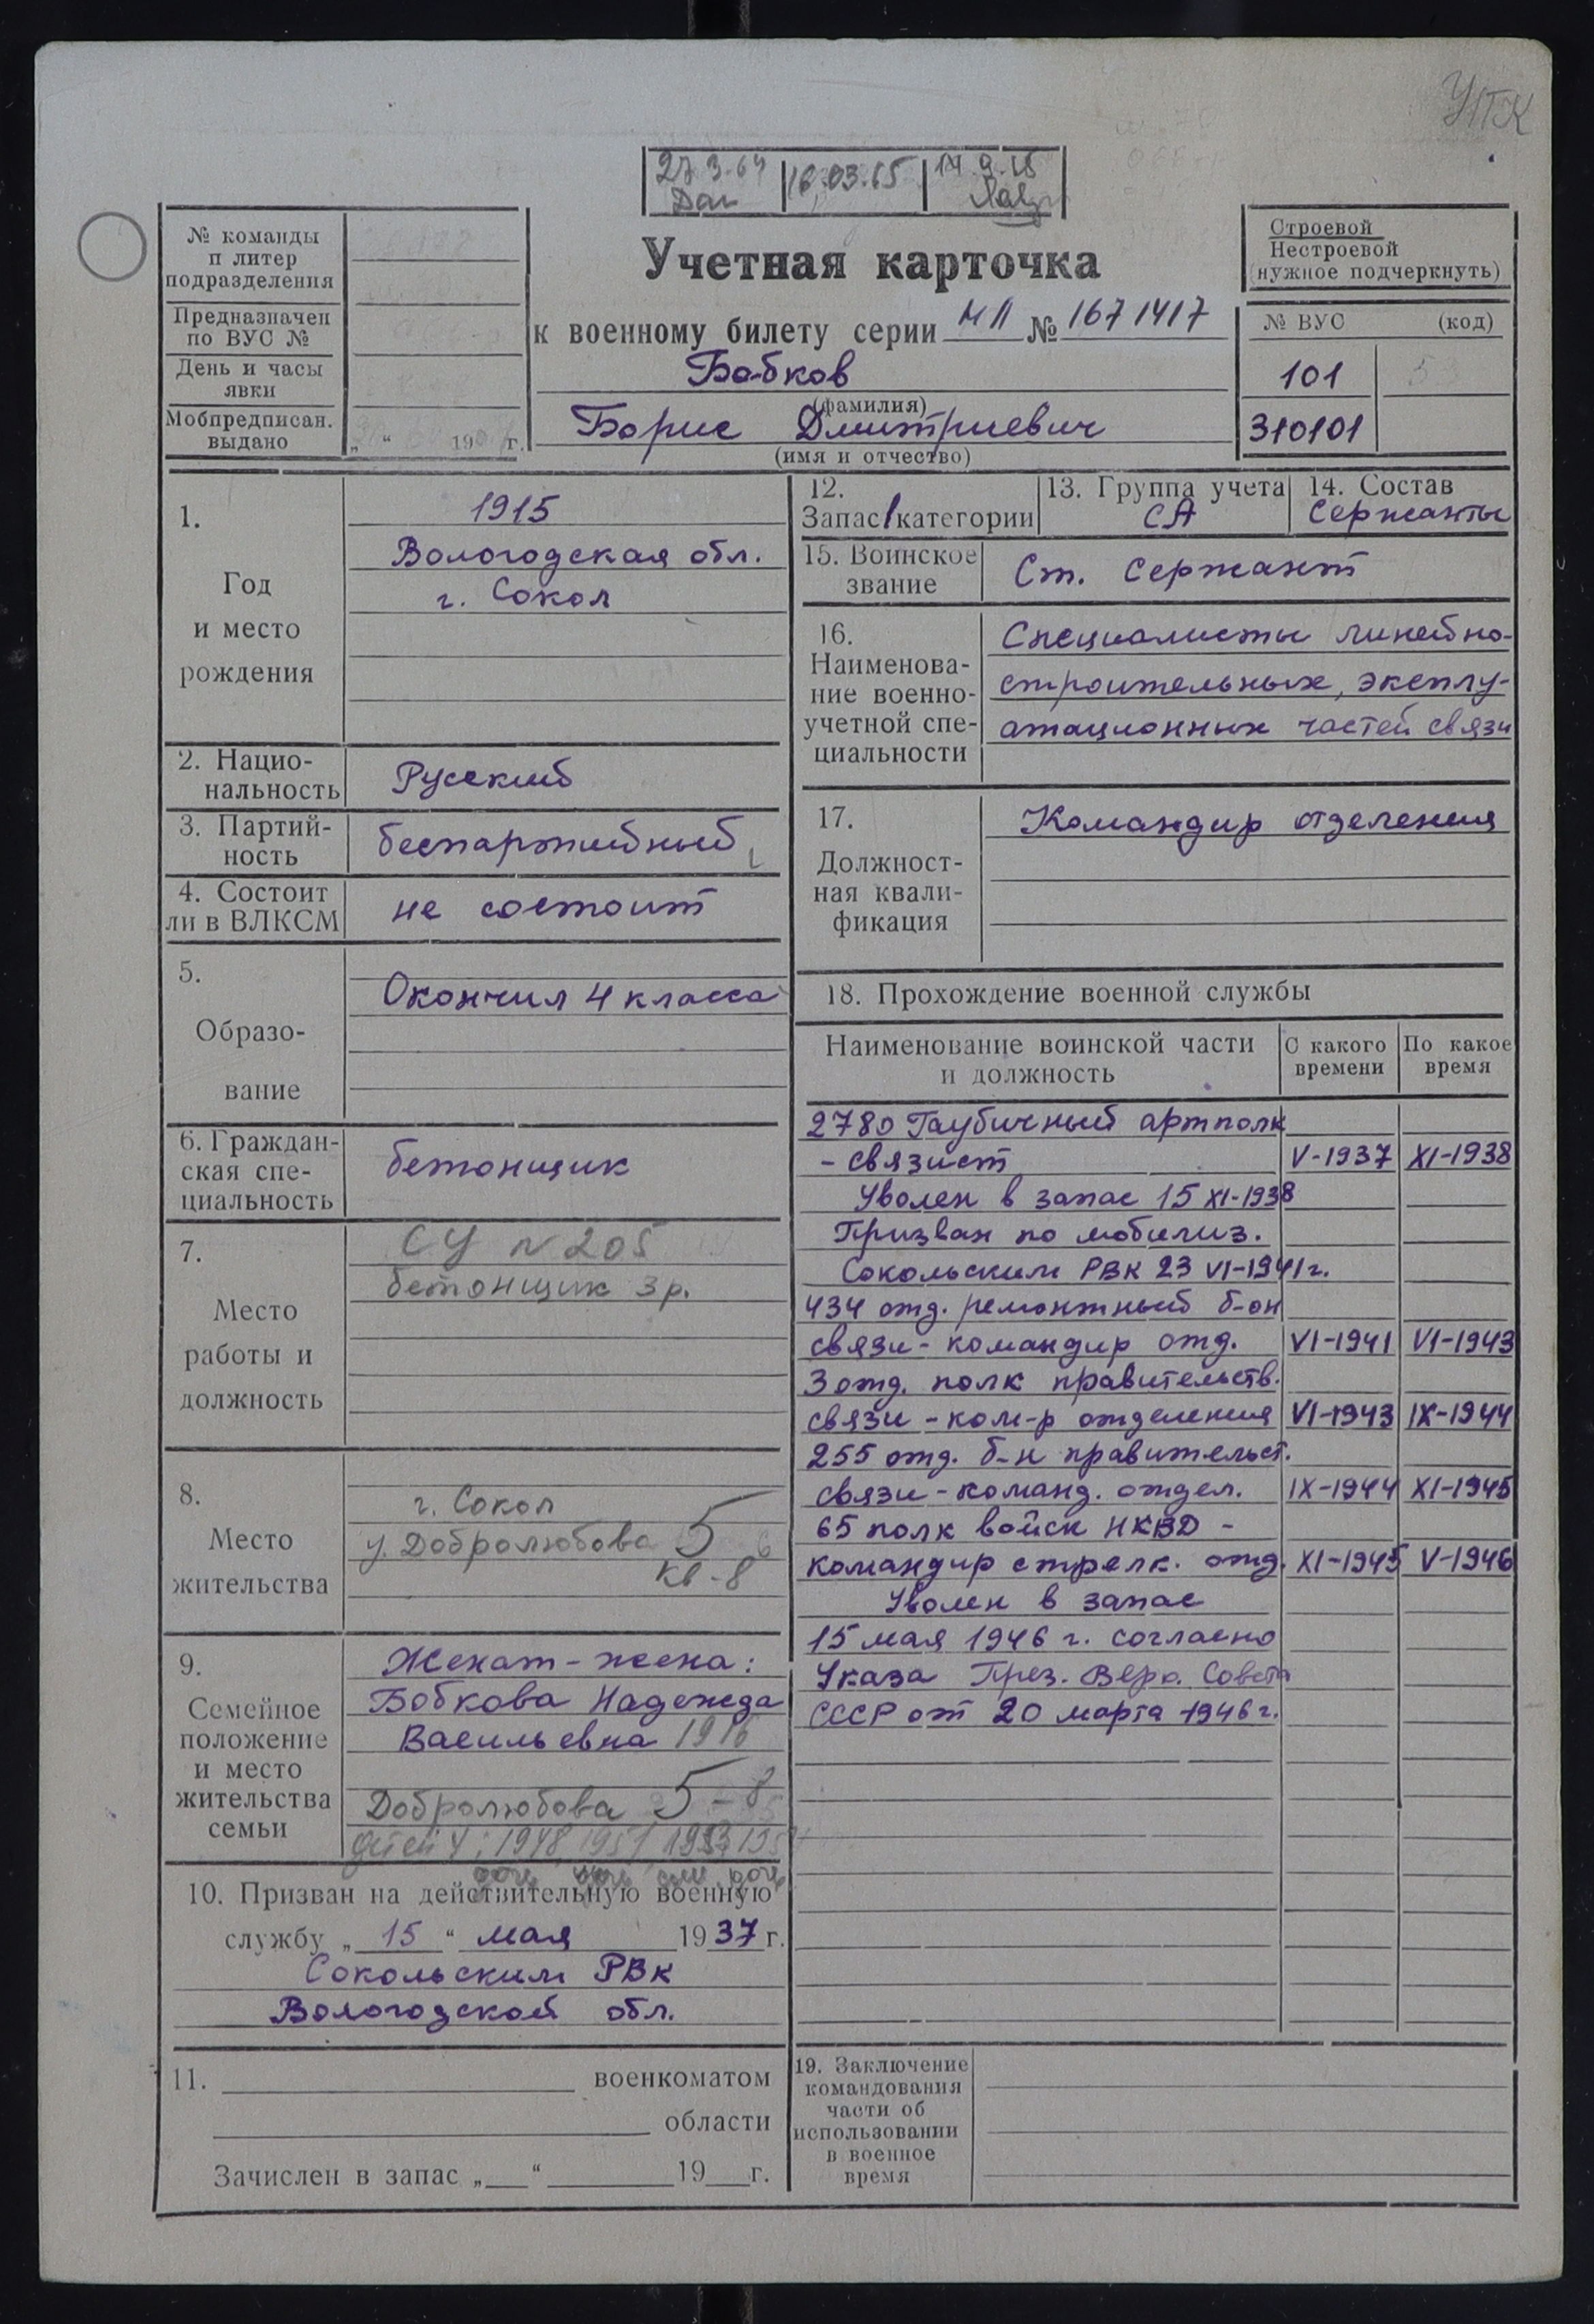 УПК
27.3.64 16.03.65 14.9.65
№ команды
п литер
подразделения
Предназначен
по ВУС №
День и часы
явки
Мобпредписан.
выдано
„ “ 196 г.
Учетная карточка
к военному билету серии МЛ № 1671417
Бобков
(фамилия)
Борис Дмитриевич
(имя и отчество)
Строевой
Нестроевой
(нужное подчеркнуть)
№ ВУС (код)
101 5
310101
1.
Год
и место
рождения
1915
Вологодская обл.
г. Сокол
2. Нацио-
нальность
Русский
3. Партий-
ность
беспартийный
4. Состоит
ли в ВЛКСМ
не состоит
5.
Образо-
вание
Окончил 4 класса
6. Граждан-
ская спе-
циальность
бетонщик
7.
Место
работы и
должность
СУ N 205
бетонщик 3 р.
8.
Место
жительства
г. Сокол
у. Добролюбова 5
кв-8
9.
Семейное
положение
и место
жительства
семьи
Женат - жена:
Бобкова Надежда
Васильевна 1916
Добролюбова 5-8
детей 4: 1948, 1951 1953 195
дочь дочь сын дочь
10. Призван на действительную военную
службу „ 15 “ мая 1937 г.
Сокольским РВК
Вологодской обл.
11. военкоматом
области
Зачислен в запас „ “ 19 г.
12.
Запас 1 категории
13. Группа учета
СА
14. Состав
Сержанты
15. Воинское
звание
Ст. Сержант
16.
Наименова-
ние военно-
учетной спе-
циальности
Специалисты линейно-
строительных, эксплу-
атационных частей связи
17.
Должност-
ная квали-
фикация
Командир отделения
18. Прохождение военной службы
Наименование воинской части
и должность
С какого
времени
По какое
время
2780 Гаубичный артполк
- связист V-1937 XI-1938
Уволен в запас 15 XI-1938
Призван по мобилиз.
Сокольским РВК 23 VI-1941 г.
434 отд. ремонтный б-он
связи - командир отд. VI-1941 VI-1943
3 отд. полк правительств.
связи - ком-р отделения VI-1943 IX-1944
255 отд. б-н правительст.
связи - команд. отдел. IX-1944 XI-1945
65 полк войск НКВД -
командир стрелк. отд. XI-1945 V-1946
Уволен в запас
15 мая 1946 г. согласно
Указа През. Верх. Совета
СССР от 20 марта 1946 г.
19. Заключение
командования
части об
использовании
в военное
время